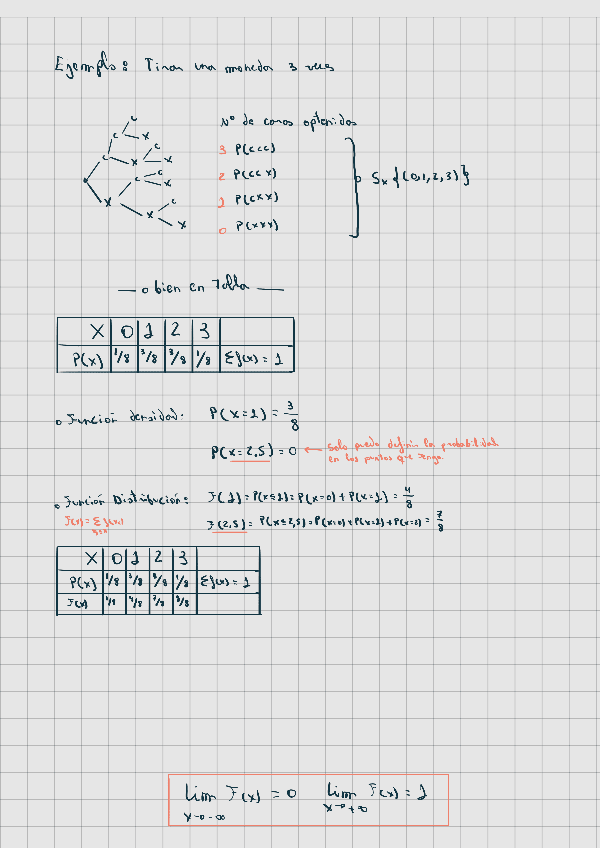 Ejemplo: Tirar una moneda 3 veces
Nº de caras obtenidas
3 P(ccc)
2 P(ccx)
1 P(cxx)
0 P(xxx)
Sx {(0,1,2,3)}
c
c x
c
c x x
c
c x
x
c
x
x
— o bien en Tabla —
X 0 1 2 3
P(x) 1/8 3/8 3/8 1/8 Σf(x) = 1
Función densidad: P(x=1) = 3/8
P(x=2,5) = 0 ← Solo puedo definir la probabilidad
en los puntos que tengo.
Función Distribución: F(1) = P(x≤1) = P(x=0) + P(x=1) = 4/8
F(x) = Σ f(xi)
F(2,5) = P(x≤2,5) = P(x=0) + P(x=1) + P(x=2) = 7/8
X 0 1 2 3
P(x) 1/8 3/8 3/8 1/8 Σf(x) = 1
F(x) 1/8 4/8 7/8 8/8
lim F(x) = 0 lim F(x) = 1
x→-∞ x→+∞